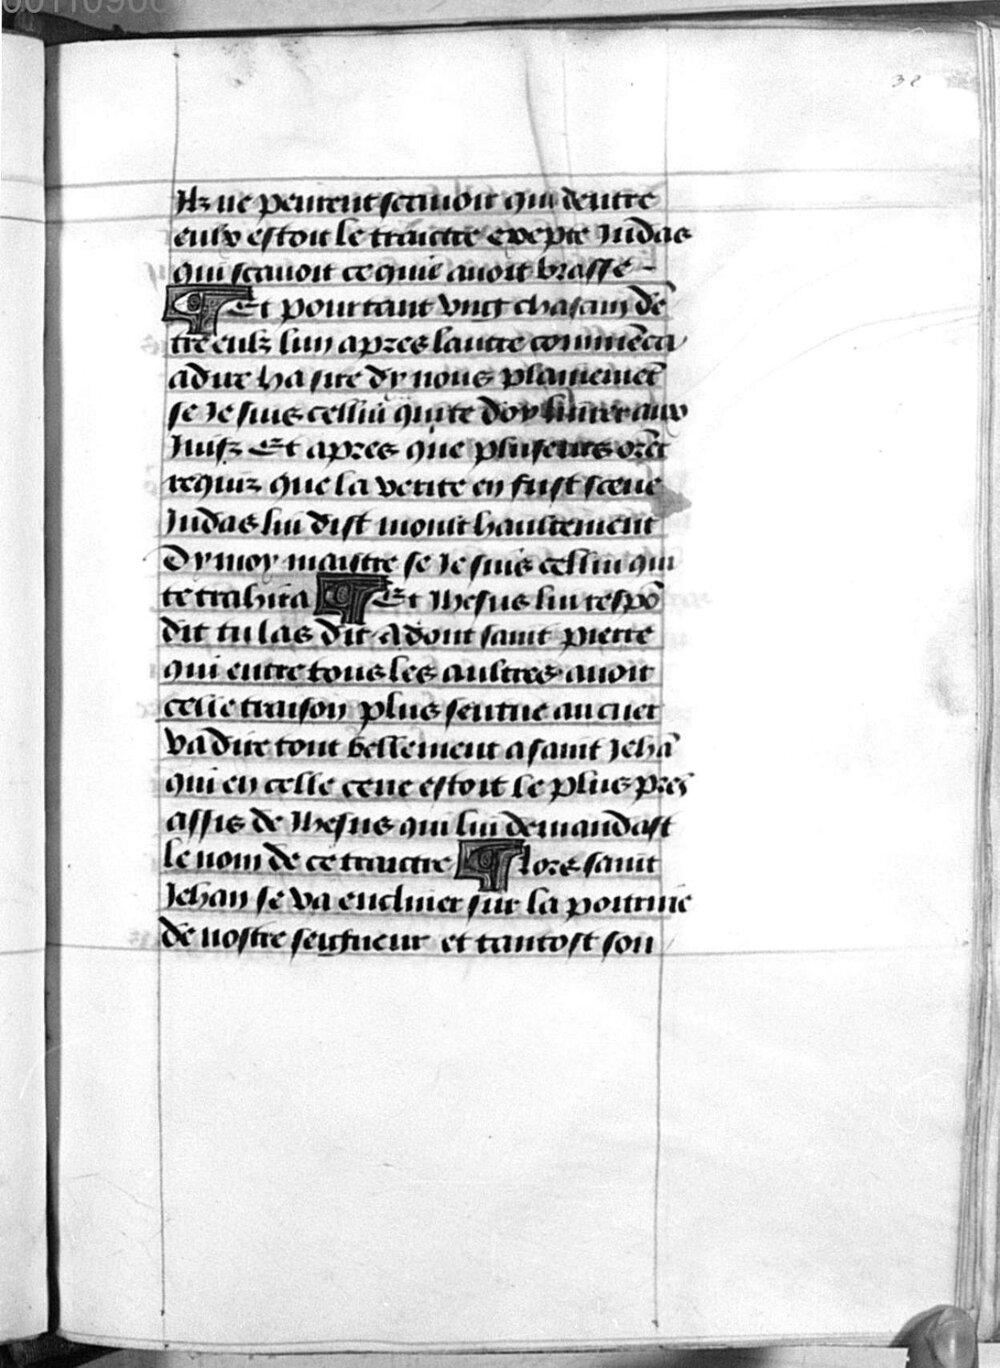 38
Ilz ne peurent scauoir qui dentre
eulx estoit le traictre excepte Iudas
qui scauoit ce quil auoit brasse
¶ Et pourtant vng chascun dẽ
tre eulz lun apres lautre commẽca
a dire ha sire dy nous plainemẽt
se Ie suis celluy qui te doy liurer aux
Iuifz Et apres que pluseurs orẽt
requiz que la verite en fust sceue
Iudas lui dist moult haultement
Dy moy maistre se Ie suis cellui qui
te trahira ¶ Et Ihesus lui respõ
dit tu las dit Adont saint pierre
qui entre tous les aultres auoit
celle traison plus sentue au cuer
va dire tout bellement a saint Iehã
qui en celle cene estoit le plus pres
assis de Ihesus qui lui demandast
le nom de ce traictre ¶ lors saint
Iehan se va encliner sur la poitrine
de nostre seigneur et tantost son